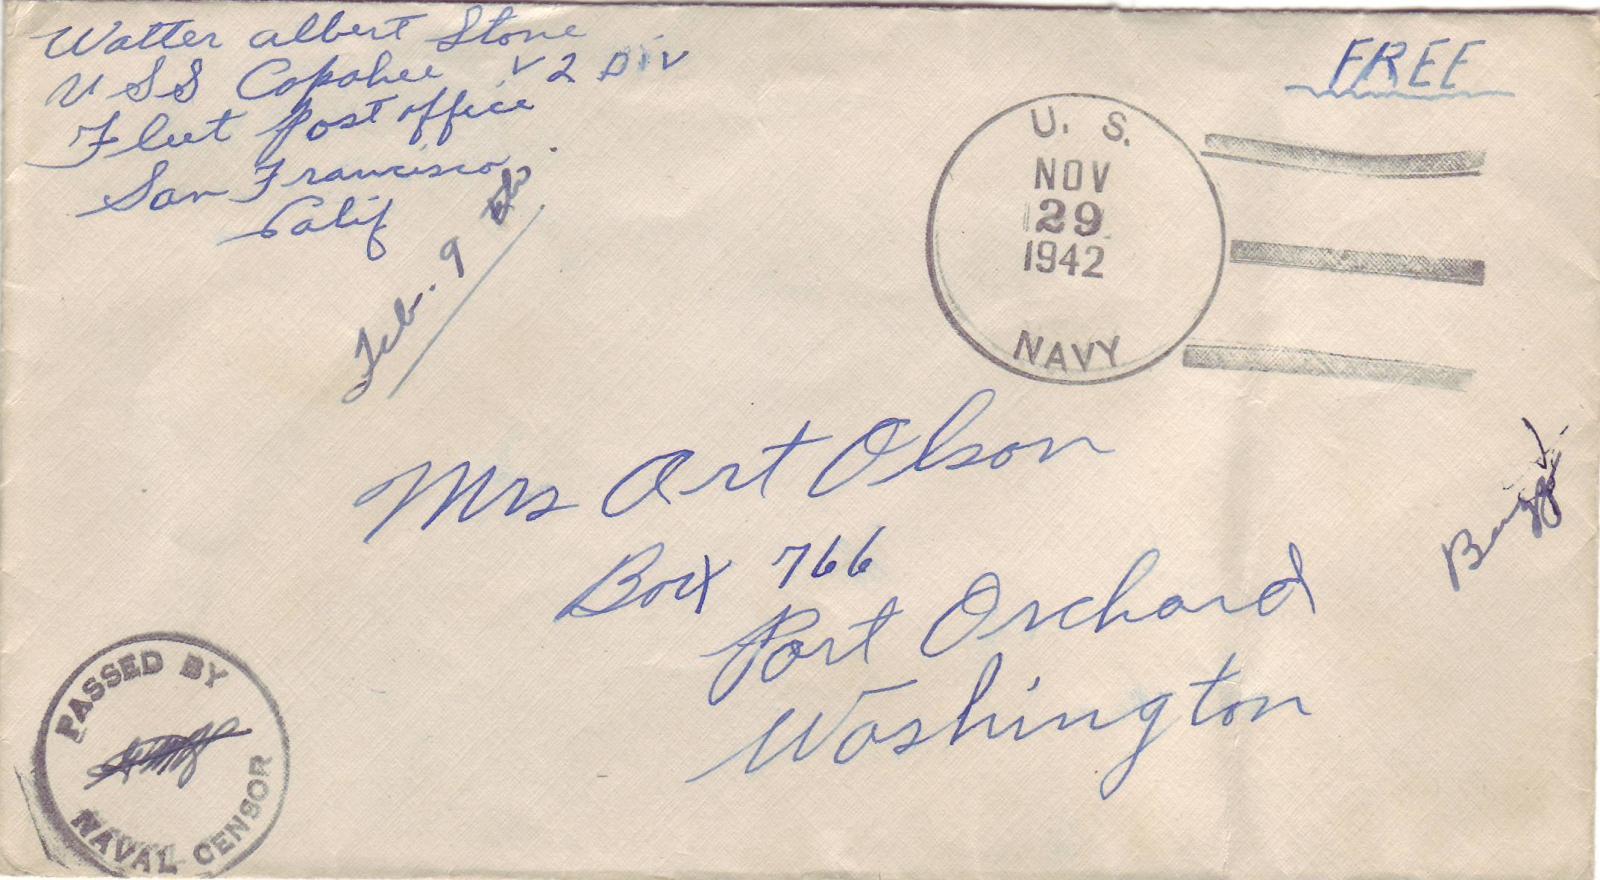 Walter Albert Stone
USS Copahee V2 Div
Fleet Post Office
San Francisco
Calif
FREE
U. S.
NOV
29
1942
NAVY
Feb. 9
Mrs Art Olson
Box 766
Port Orchard
Washington
PASSED BY
NAVAL CENSOR